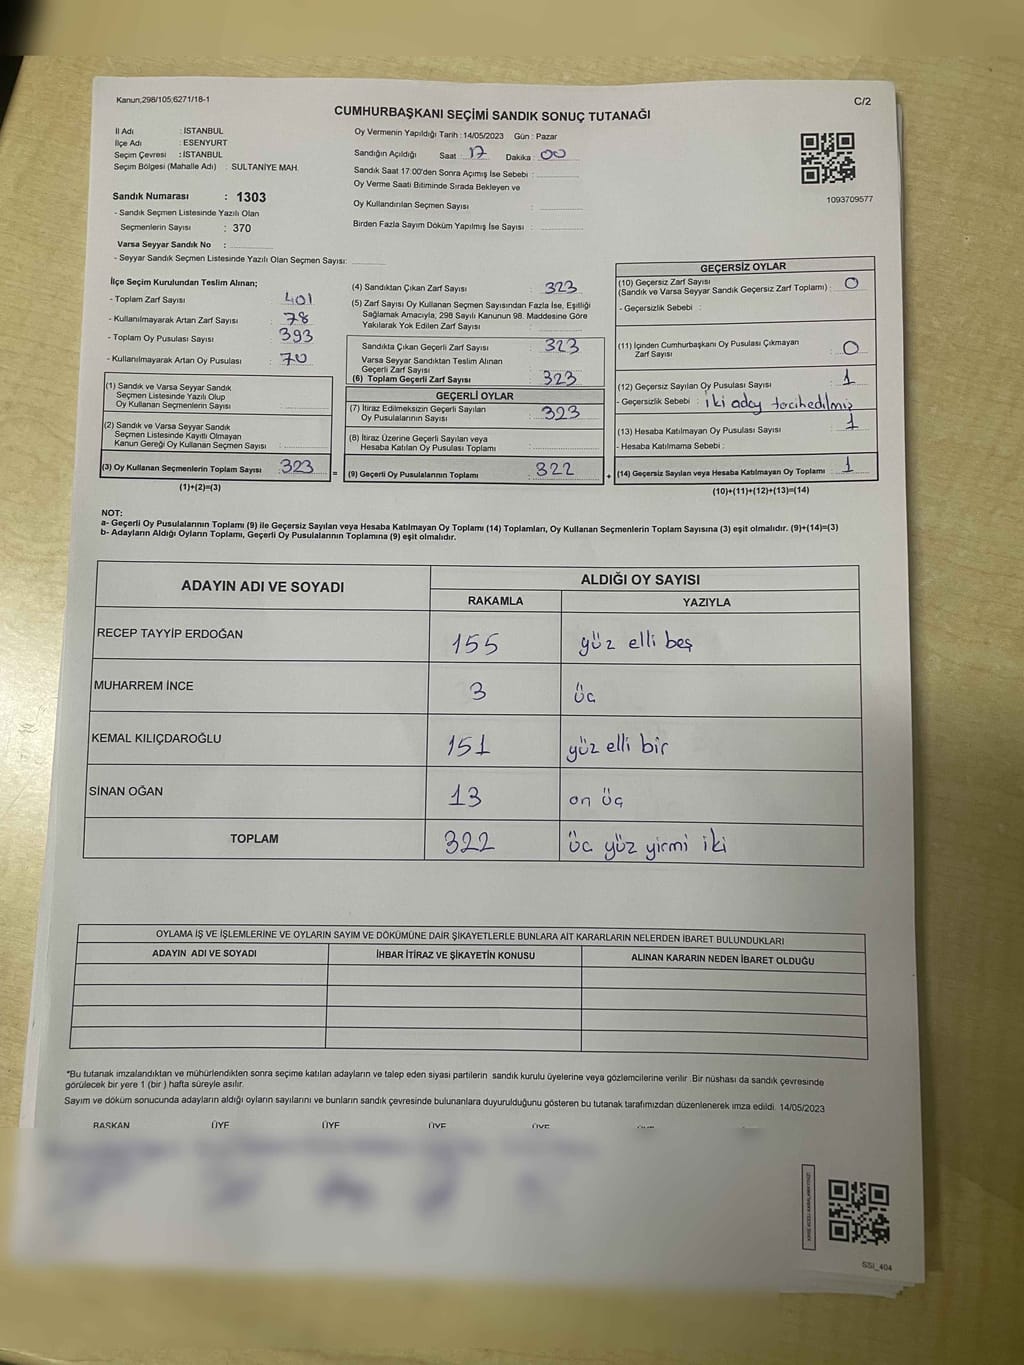 Kanun;298/105;6271/18-1
C/2
CUMHURBAŞKANI SEÇİMİ SANDIK SONUÇ TUTANAĞI
İl Adı : İSTANBUL
İlçe Adı : ESENYURT
Seçim Çevresi : İSTANBUL
Seçim Bölgesi (Mahalle Adı) : SULTANİYE MAH.
Sandık Numarası : 1303
- Sandık Seçmen Listesinde Yazılı Olan
Seçmenlerin Sayısı : 370
Varsa Seyyar Sandık No :
- Seyyar Sandık Seçmen Listesinde Yazılı Olan Seçmen Sayısı:
Oy Vermenin Yapıldığı Tarih : 14/05/2023 Gün : Pazar
Sandığın Açıldığı Saat : 17 Dakika : 00
Sandık Saat 17:00'den Sonra Açımış İse Sebebi :
Oy Verme Saati Bitiminde Sırada Bekleyen ve
Oy Kullandırılan Seçmen Sayısı :
Birden Fazla Sayım Döküm Yapılmış İse Sayısı :
1093709577
İlçe Seçim Kurulundan Teslim Alınan;
- Toplam Zarf Sayısı : 401
- Kullanılmayarak Artan Zarf Sayısı : 78
- Toplam Oy Pusulası Sayısı : 393
- Kullanılmayarak Artan Oy Pusulası : 70
(1) Sandık ve Varsa Seyyar Sandık
Seçmen Listesinde Yazılı Olup
Oy Kullanan Seçmenlerin Sayısı :
(2) Sandık ve Varsa Seyyar Sandık
Seçmen Listesinde Kayıtlı Olmayan
Kanun Gereği Oy Kullanan Seçmen Sayısı :
(3) Oy Kullanan Seçmenlerin Toplam Sayısı : 323
(1)+(2)=(3)
(4) Sandıktan Çıkan Zarf Sayısı : 323
(5) Zarf Sayısı Oy Kullanan Seçmen Sayısından Fazla İse, Eşitliği
Sağlamak Amacıyla, 298 Sayılı Kanunun 98. Maddesine Göre
Yakılarak Yok Edilen Zarf Sayısı :
Sandıkta Çıkan Geçerli Zarf Sayısı : 323
Varsa Seyyar Sandıktan Teslim Alınan
Geçerli Zarf Sayısı :
(6) Toplam Geçerli Zarf Sayısı : 323
GEÇERLİ OYLAR
(7) İtiraz Edilmeksizin Geçerli Sayılan
Oy Pusulalarının Sayısı : 323
(8) İtiraz Üzerine Geçerli Sayılan veya
Hesaba Katılan Oy Pusulası Toplamı :
= (9) Geçerli Oy Pusulalarının Toplamı : 322
GEÇERSİZ OYLAR
(10) Geçersiz Zarf Sayısı
(Sandık ve Varsa Seyyar Sandık Geçersiz Zarf Toplamı) : 0
- Geçersizlik Sebebi :
(11) İçinden Cumhurbaşkanı Oy Pusulası Çıkmayan
Zarf Sayısı : 0
(12) Geçersiz Sayılan Oy Pusulası Sayısı : 1
- Geçersizlik Sebebi : iki aday tercihedilmiş
(13) Hesaba Katılmayan Oy Pusulası Sayısı : 1
- Hesaba Katılmama Sebebi :
+ (14) Geçersiz Sayılan veya Hesaba Katılmayan Oy Toplamı : 1
(10)+(11)+(12)+(13)=(14)
NOT:
a- Geçerli Oy Pusulalarının Toplamı (9) ile Geçersiz Sayılan veya Hesaba Katılmayan Oy Toplamı (14) Toplamları, Oy Kullanan Seçmenlerin Toplam Sayısına (3) eşit olmalıdır. (9)+(14)=(3)
b- Adayların Aldığı Oyların Toplamı, Geçerli Oy Pusulalarının Toplamına (9) eşit olmalıdır.
ADAYIN ADI VE SOYADI ALDIĞI OY SAYISI
RAKAMLA YAZIYLA
RECEP TAYYİP ERDOĞAN 155 yüz elli beş
MUHARREM İNCE 3 üç
KEMAL KILIÇDAROĞLU 151 yüz elli bir
SİNAN OĞAN 13 on üç
TOPLAM 322 üç yüz yirmi iki
OYLAMA İŞ VE İŞLEMLERİNE VE OYLARIN SAYIM VE DÖKÜMÜNE DAİR ŞİKAYETLERLE BUNLARA AİT KARARLARIN NELERDEN İBARET BULUNDUKLARI
ADAYIN ADI VE SOYADI İHBAR İTİRAZ VE ŞİKAYETİN KONUSU ALINAN KARARIN NEDEN İBARET OLDUĞU
*Bu tutanak imzalandıktan ve mühürlendikten sonra seçime katılan adayların ve talep eden siyasi partilerin sandık kurulu üyelerine veya gözlemcilerine verilir. Bir nüshası da sandık çevresinde
görülecek bir yere 1 (bir ) hafta süreyle asılır.
Sayım ve döküm sonucunda adayların aldığı oyların sayılarını ve bunların sandık çevresinde bulunanlara duyurulduğunu gösteren bu tutanak tarafımızdan düzenlenerek imza edildi. 14/05/2023
BAŞKAN ÜYE ÜYE ÜYE ÜYE
SSİ_404